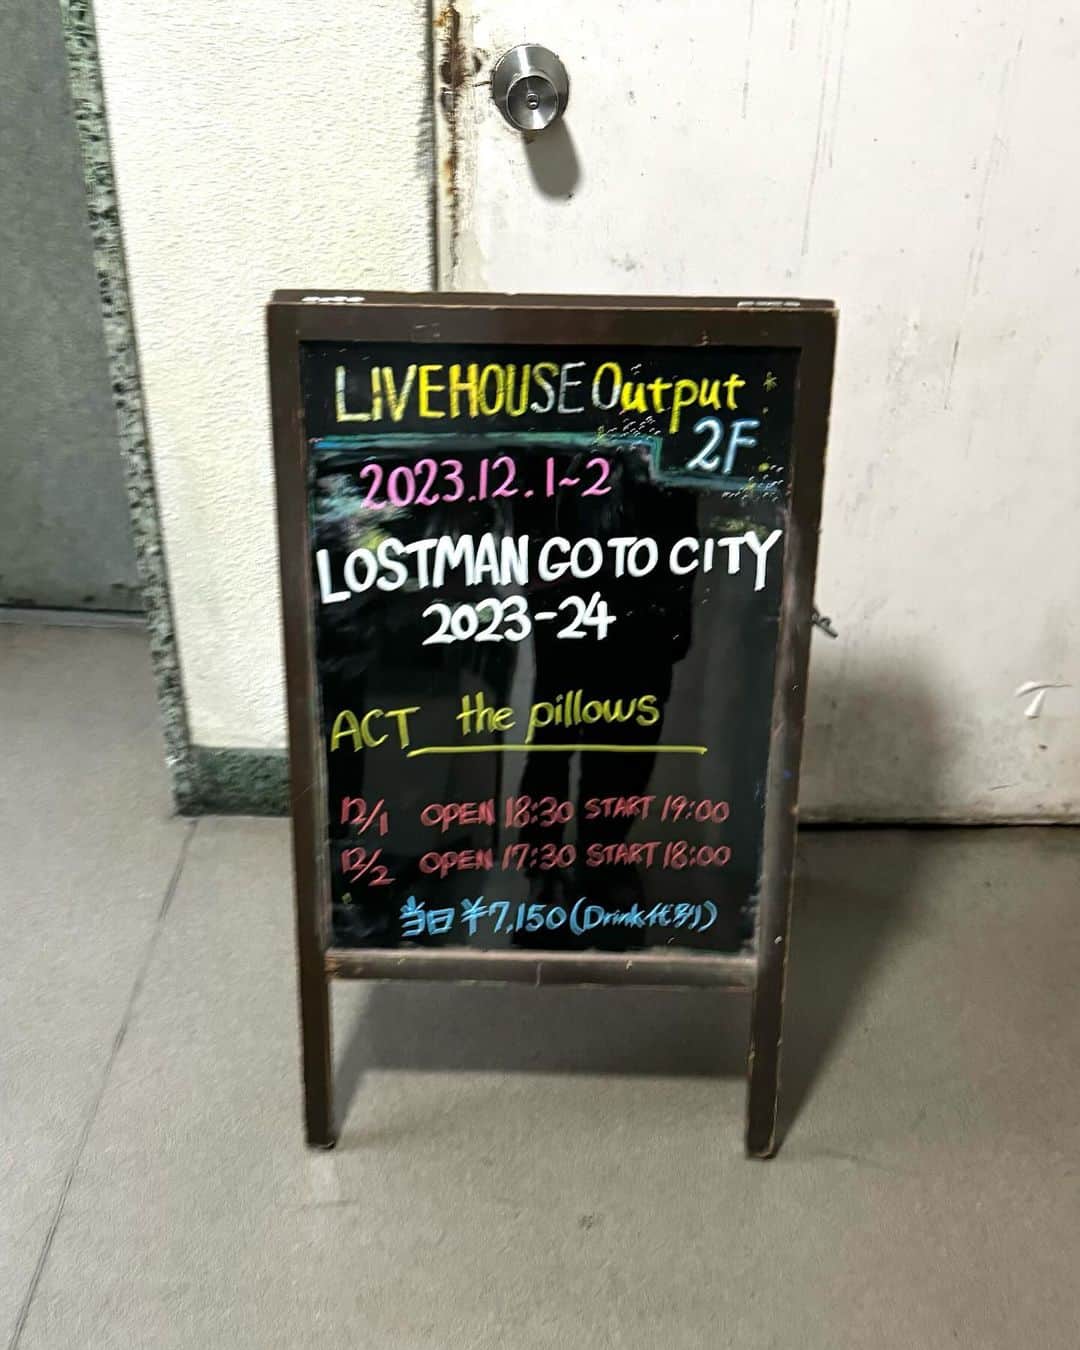 LIVEHOUSE Output
2F
2023.12.1~2
LOSTMAN GO TO CITY
2023-24
ACT the pillows
12/1 OPEN 18:30 START 19:00
12/2 OPEN 17:30 START 18:00
当日 ¥7,150 (Drink代別)